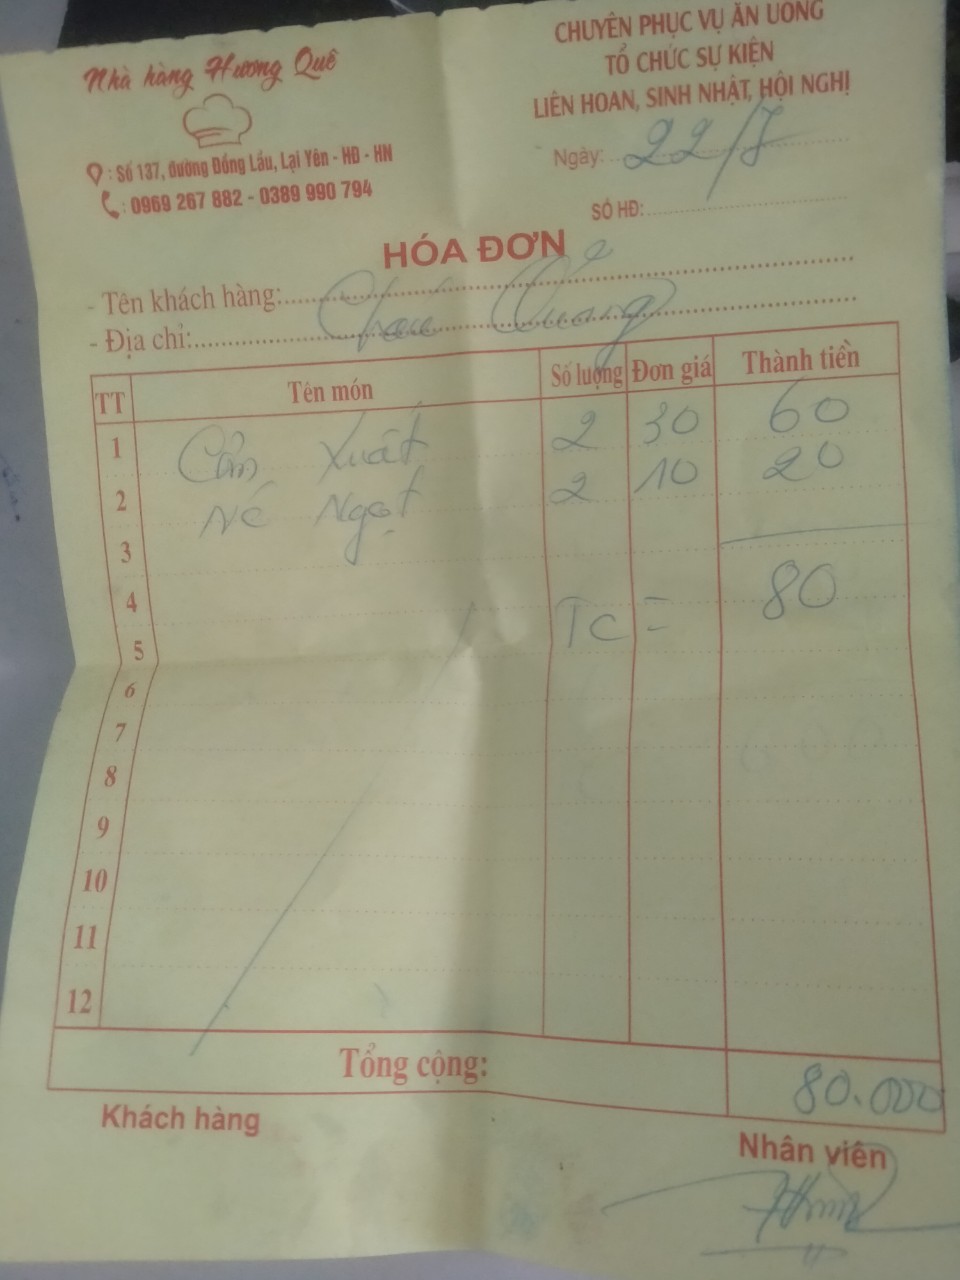 Nhà hàng Hương Quê
: Số 137, đường Đồng Lầu, Lại Yên - HĐ - HN
: 0969 267 882 - 0389 990 794
CHUYÊN PHỤC VỤ ĂN UỐNG
TỔ CHỨC SỰ KIỆN
LIÊN HOAN, SINH NHẬT, HỘI NGHỊ
Ngày: 22/7
SỐ HĐ:
HÓA ĐƠN
- Tên khách hàng:
- Địa chỉ:
TT Tên món Số lượng Đơn giá Thành tiền
1 Cơm Xuất 2 30 60
2 Nc Ngọt 2 10 20
3
4 TC = 80
5
6
7
8
9
10
11
12
Tổng cộng: 80.000
Khách hàng Nhân viên